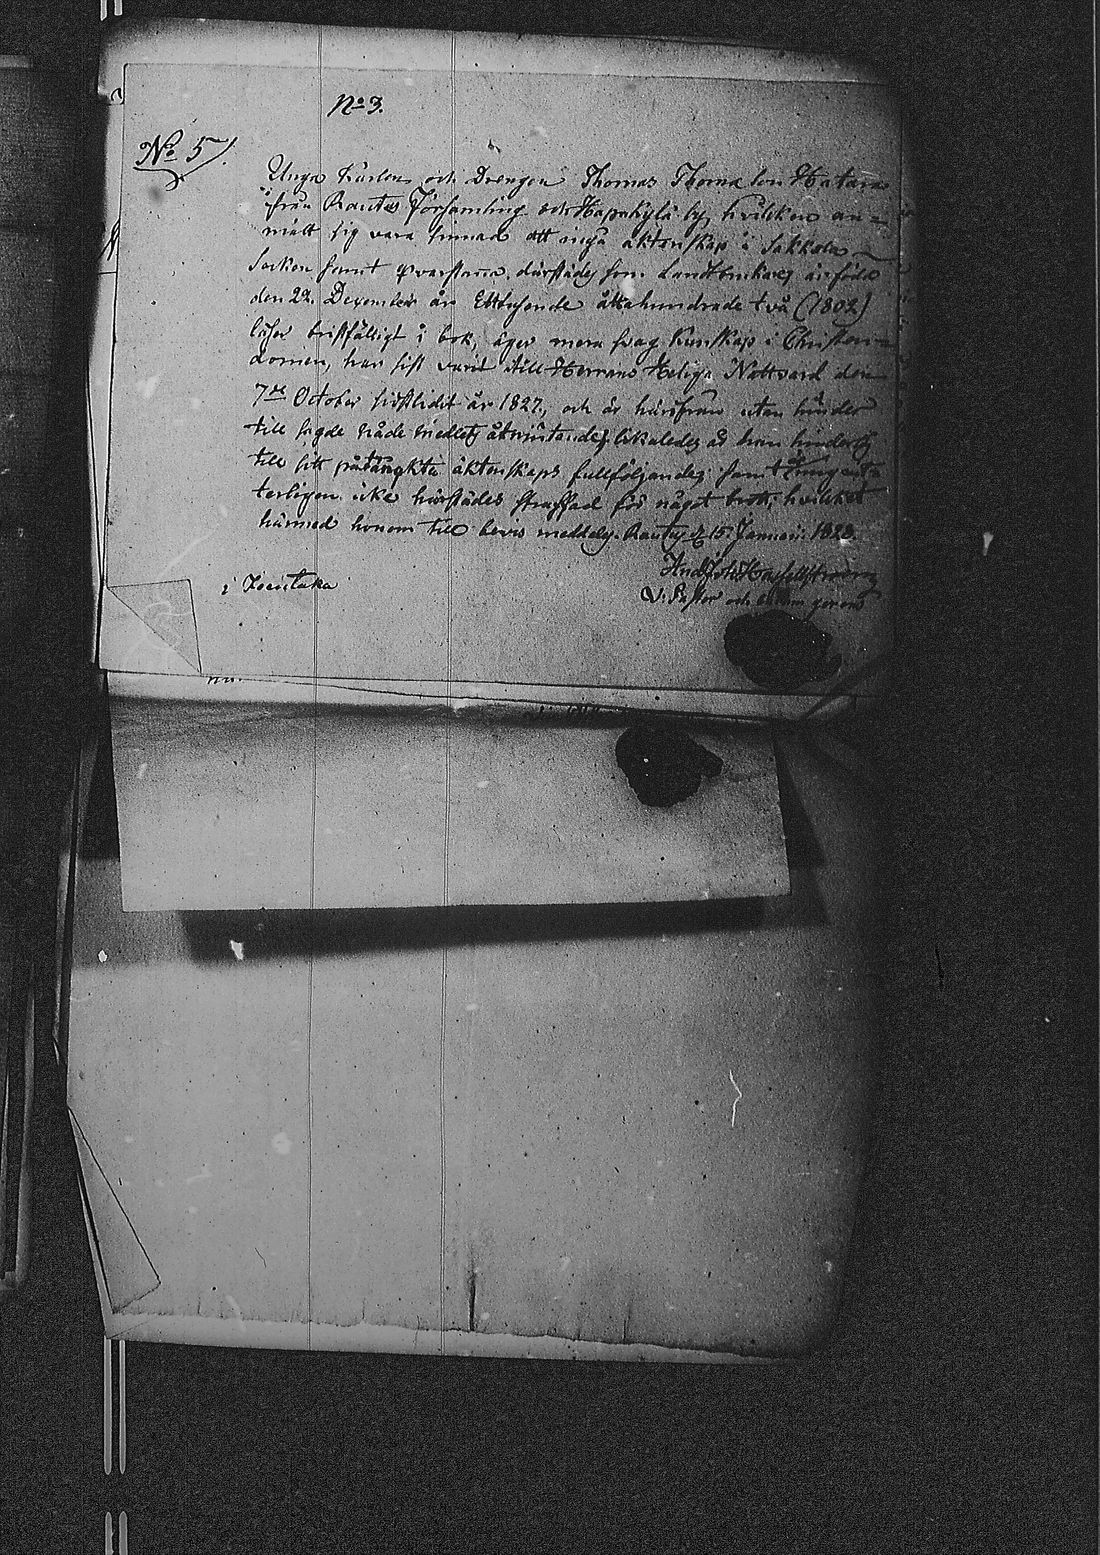 No 3.
No 5/.
Unga Karlen och Drengen Thomas Thomason Hatara
ifrån Rautus Församling och Hapakylä by, hvilken an=
mält sig vara sinnad att ingå äktenskap i Sakkola
Socken samt qvarstanna därstädes som Landbrukare, är född
den 22. December år Ettusende åttahundrade två (1802)
läser bristfälligt i bok, äger mera svag Kunskap i Christen=
domen, har sist varit till Herrans Heliga Nattvard den
7de October sistlidit år 1827, och är härifrån utan hinder
till sagde nåde medlets åtnjutande, likaledes är han hinderlös
till sitt påtänkta äktenskaps fullföljande; samt
terligen icke härstädes straffad för något brott; hvilket
härmed honom till bevis meddelas. Rautus d. 15 Januari 1828.
And.
V. Pastor och
i